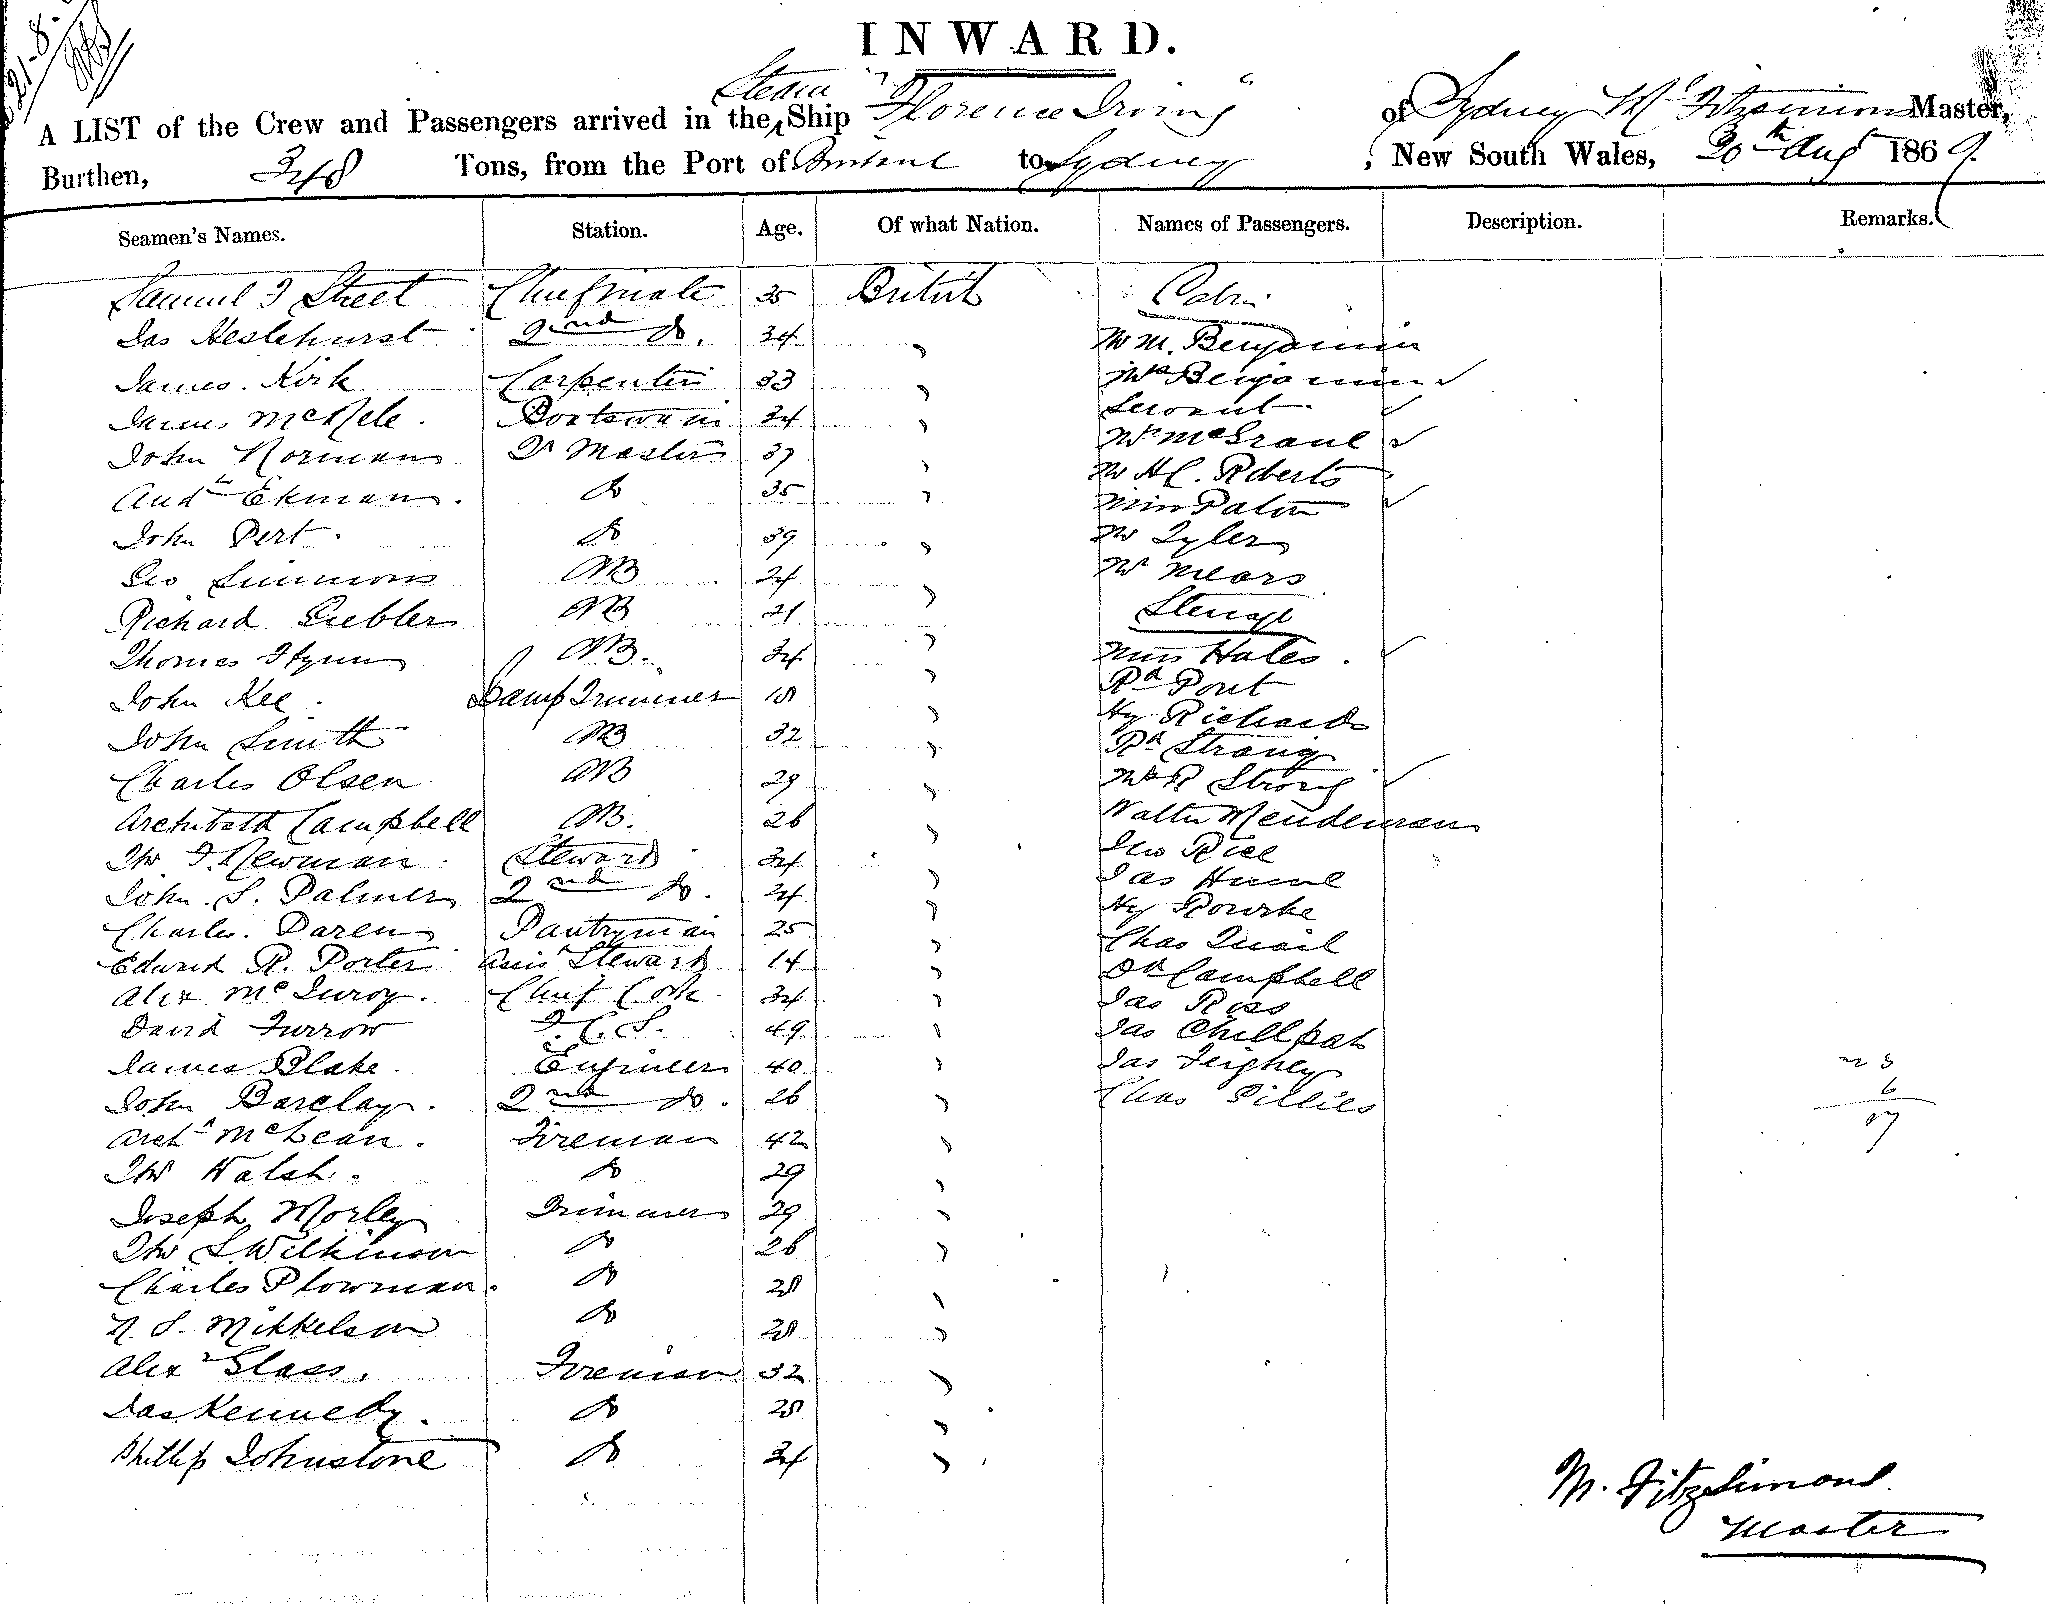 INWARD.
A LIST of the Crew and Passengers arrived in the Steam Ship "Florence Irving" of Sydney M Fitzsimons Master,
Burthen, 348 Tons, from the Port of to Sydney, New South Wales, 20th Aug 1869.
Seamen's Names. Station. Age. Of what Nation. Names of Passengers. Description. Remarks.
Samuel J Street Chief mate 35 British Cabin
Jas Heslehurst 2nd Do. 34 "
Mr M. Benjamin
James Kirk Carpenter 33 "
Mrs Benjamin
James Boatswain 34 "
Servant
John Norman Qr Master 37 "
Mr H C. Roberts
Andw Ekman. Do 35 "
Miss Paton
John Pert. Do 39 "
Mr Tyler
Geo Simmons AB 24 "
Mr Mears
Richard AB 21 "
Steerage
Thomas Flynn AB. 34 "
Miss Hales.
John Kee. Lamp Trimmer 18 "
Rd Pont
John Smith AB 32 "
Hy Richards
Rd Strong
Charles Olsen AB 29 "
Mrs R Strong
Archibald Campbell AB. 26 "
Walter
Thos J. Newman Steward 34 "
Geo Rice
John. S. Palmer 2nd Do. 24 "
Jas Hume
Charles. Daren Pantryman 25 "
Hy Rourke
Edward R. Porter Assist Steward 14 "
Chas Quail
Alex Chief Cook 34 "
Dd Campbell
David Furrow F. C. S. 49 "
Jas Ross
Jas Chillpat
James Blake. Engineer 40 "
Jas Feighey
John Barclay. 2nd Do. 26 "
Chas Gillies
Archd McLean. Fireman 42 "
Thos Walsh. Do 29 "
Joseph Morley Trimmer 29 "
Thos S. Wilkinson Do 26 "
Charles Plowman. Do 28 "
N. S. Mikkelson Do 28 "
Alexr Glass. Fireman 32 "
Jas Kennedy. Do 28 "
Phillip Johnstone Do 34 "
M. Fitzsimons
Master